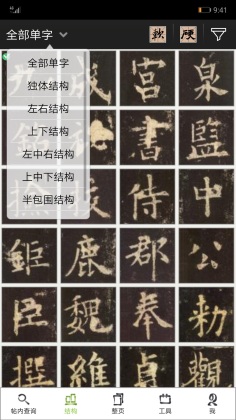 9:41
全部单字
全部单字
独体结构
左右结构
上下结构
左中右结构
上中下结构
半包围结构
宫 泉
書 監
侍 中
鉅 鹿 郡 公
臣 魏 奉 勅
撰 雖 貞 觀
帖内查询 结构 整页 工具 我